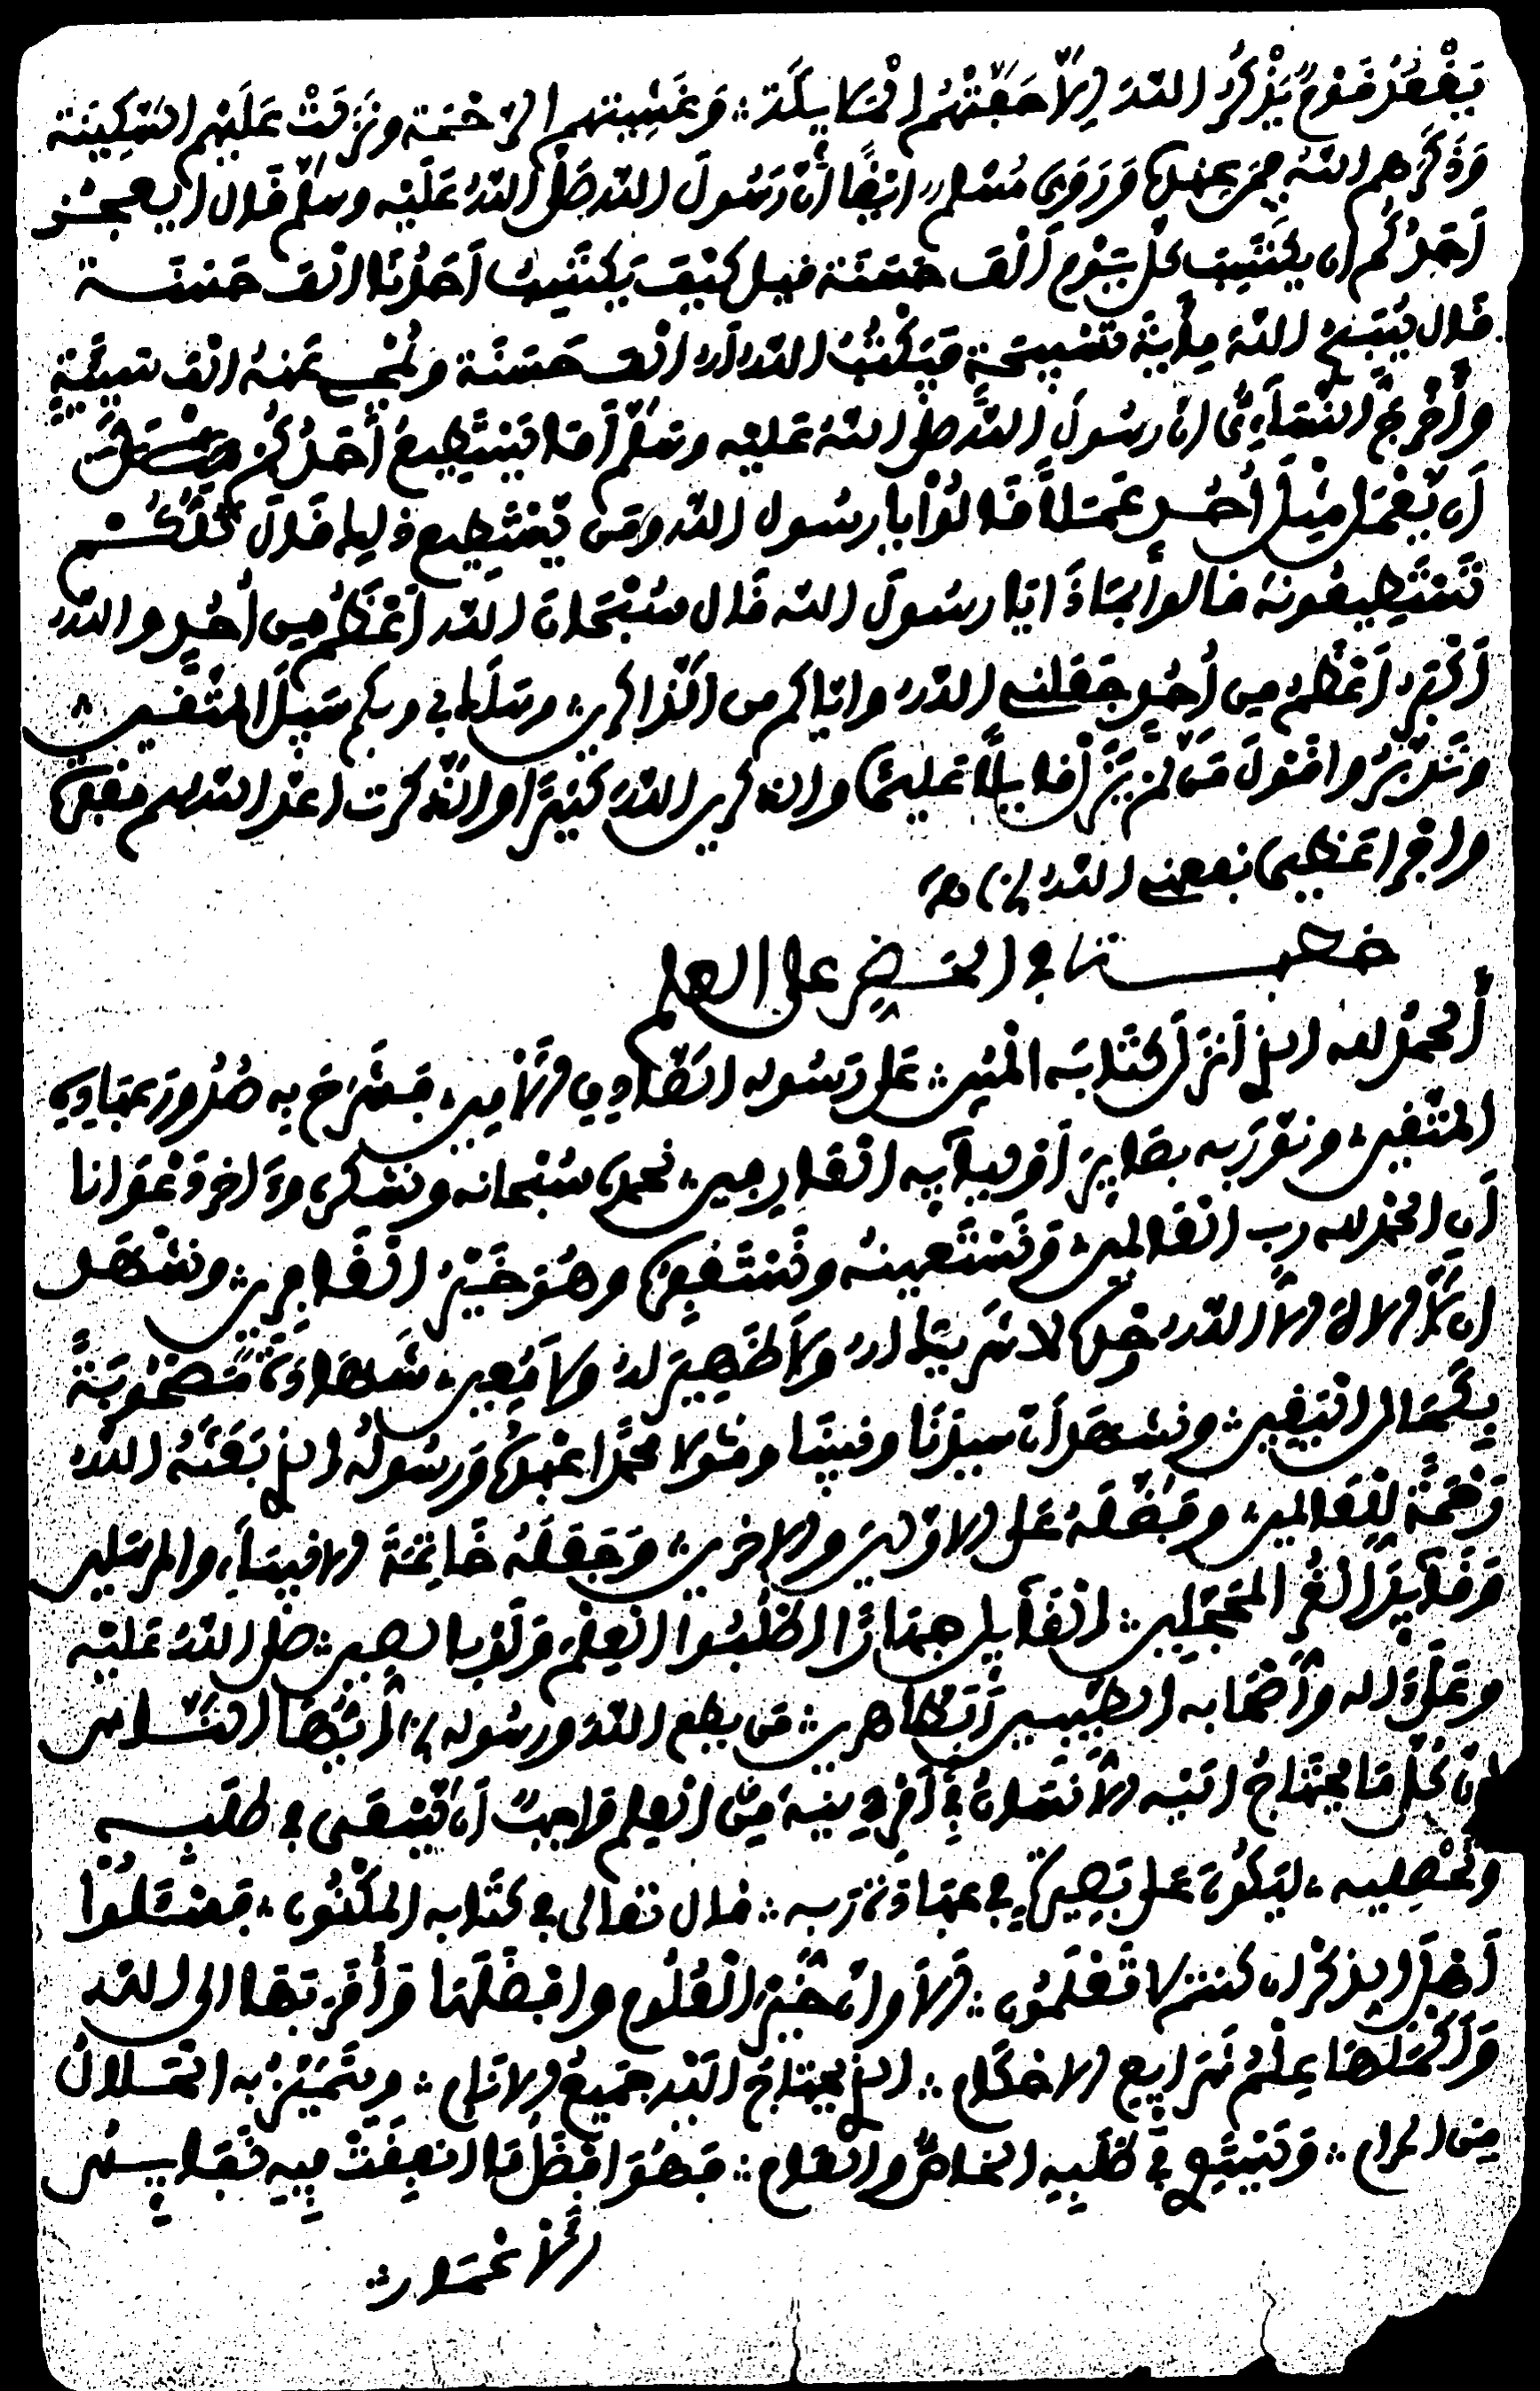 يَقْعُدُ قَوْمٌ يَذْكُرُ اللهَ إِلَّا حَفَّتْهُمُ الْمَلَايِكَة، وَغَشِيتهم الرّحْمَة ونَزَلَتْ عَلَيْهِم السَّكِينَة
وَذَكَرَهم اللهُ فيمن عنده وَرَوَى مُسْلم أَيْضًا أنّ رَسُولَ الله صَلَّى اللهُ عَلَيْه وسلّم قَال أيعجز
أَحَدُكُم ان يَكْتَسِبَ كل يَوْم أَلْف حَسَنَة فيل كَيْف يَكْتَسِبُ أَحَدُنَا الْف حَسَنَة
قال يُسَبِّحُ اللهَ مِائَة تَسْبِيحَة فَيَكْتُبُ اللهُ لَهُ الْف حَسَنَة ونُمْحى عَنْهُ الْف سيئَةٍ
وأَخْرَجَ النّسَاءِيّ انّ رسُولَ الله صلى اللهُ عَليْه وسَلَّم أَمَا يَسْتَطِيعُ أَحَدُكُمْ
أَن يَعْمَل مِثْلَ أُحُدٍ عَمَلاً قَالُوْا يا رسُول الله ومَن يَسْتَطِيع ذلِك قَالَ كُلُّكُمْ
تَسْتَطِيعُونهُ فالوا بمَاذَا يَا رسُولَ الله قَال سُبْحَانَ الله أَعْظَمُ مِن أُحُدٍ والله
أَكْبَرُ أَعْظَمُ مِن أُحُدٍ جَعَلني اللهُ وايّاكم من الذّاكرين وسَلَك بي وبكم سَبِيلَ المُتَّقين
وَتَدَبَّرُوا قَوْلَ مَن لَمْ يَزَلْ قايلاً عليما والذاكرين اللهَ كثيرًا والذّاكرت اعد الله لهم مغفرة
واجْرًا عَظِيما نفعني اللهُ الخ
خطبة في الحض على العلم
أَلحمدُ لله الذي أَنزَلَ كتَابَه الْمُبين، عَلَى رَسُوله الصَّادِق الأَمِين، فَشَرَحَ به صُدُورَ عِبَادِه
المتّقين، ونوّرَ به بصَايِرَ أَوْلِيَآئِه الْعَارِفِين، نحمده سُبْحانه ونشكره وءَاخر دَعْوَانا
أَنِ الحَمْدُ لله رب الْعَالمين، وَنَسْتَعِينهُ ونَسْتَغْفِره وهُوَ خَيْرُ الْغَافِرِين، ونشْهَد
ان لا إِلاهَ إلاَّ اللهُ وحْده لا شَرِيكَ لهُ ولاَ ظَهِيرَ لهُ ولا مُعِين، شَهَادَة مَصْحُوبَةً
بِكَمَال الْيَقِين، ونشهَد أَنّ سيدَنَا ونبينَا ومَوْلانَا محمَّدا عَبْدُهُ وَرسُولُه الذي بَعَثَهُ اللهُ
رَحْمَةً لِلْعَالمين، وفَضَّلَهُ عَلَى الاوّلينَ والاخرين، وَجَعَلَهُ خَاتِمَةَ الانبيَاءِ والمرسَلين
وَقَآيِدَ الْغُرِّ المُحَجَّلِين، الْقَآيِل جِهَارًا اطْلُبُوا الْعِلْمَ وَلَوْ بالصِين، صَلّى اللهُ عَلَيْه
وعَلَى ءَاله وأَصْحَابه الطيّبين الطَّاهرين، مَن يطع اللهَ ورسُوله الخ أَيُّهَا النَّاس
إنّ كُلَّ مَا يَحْتَاجُ الَيْه الاِنسَانُ فِي أَمْرِ دِينِهِ مِنَ الْعِلْم وَاجِبٌ أَن يَسْعَى في طَلَبِهِ
وتَحْصِيله، لِيَكُونَ عَلَى بَصِيرَةٍ في عِبَادَة رَبِه، قال تَعَالى في كتَابه المَكْنُون، فَسْئَلُوا
أَهْلَ الذِكْر ان كنتم لا تَعْلَمُون، أَلاَ وانّ خَيْرَ الْعُلُوم وافْضَلَهَا وأَقْرَبَهَا الى الله
وَأَكْمَلَهَا عِلْمُ شَرَايِعِ الاحْكَام، الذي يحتاجُ الَيْهِ جَمِيعُ الانَام، ويتَمَيَّزُ به الحَلالُ
مِن الحرام، وَيَنبَغِي في طَلَبِهِ الخاصّ والعام، فَهُوَ افْضَلُ مَا انفِقَتْ فِيهِ نَفَايِسُ
الاعْمَار،